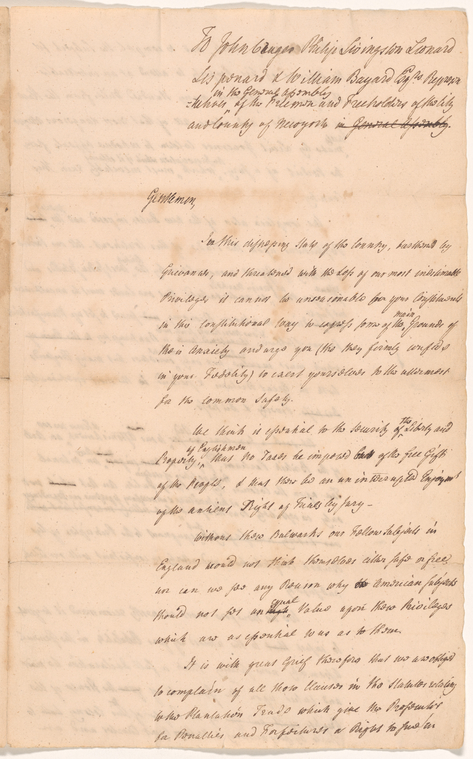 To John Cruger Philip Livingston Leonard
Lispenard & William Bayard Esqrs Represen
in the General Assembly
tatives of the Freemen and Freeholders of the City
and County of New York in General Assembly.
Gentlemen,
In this distressing State of the Country, burthened by
Grievances, and threatened with the Loss of our most inestimable
Privileges it cannot be unseasonable for your Constituents
main
in this constitutional way to express some of the Grounds of
their Anxiety and urge you (tho they firmly confide
in your Fidelity) to exert yourselves to the uttermost
for the common Safety.
We think is essential to the Security of the Liberty and
of Englishmen
Property, that no Taxes be imposed but of the free Gifts
of the People, & that there be an uninterrupted Enjoyment
of the antient Right of Trials by Jury —
Without these Bulwarks our Fellow Subjects in
England would not think themselves either safe or free
nor can we see any Reason why American Subjects
equal
should not set an Value upon these Privileges
which are as essential to us as to them.
It is with great Grief therefore that we are obliged
to complain of all those Clauses in the Statutes relating
to the Plantation Trade which give the Prosecutor
for Penalties and Forfeitures a Right to sue in